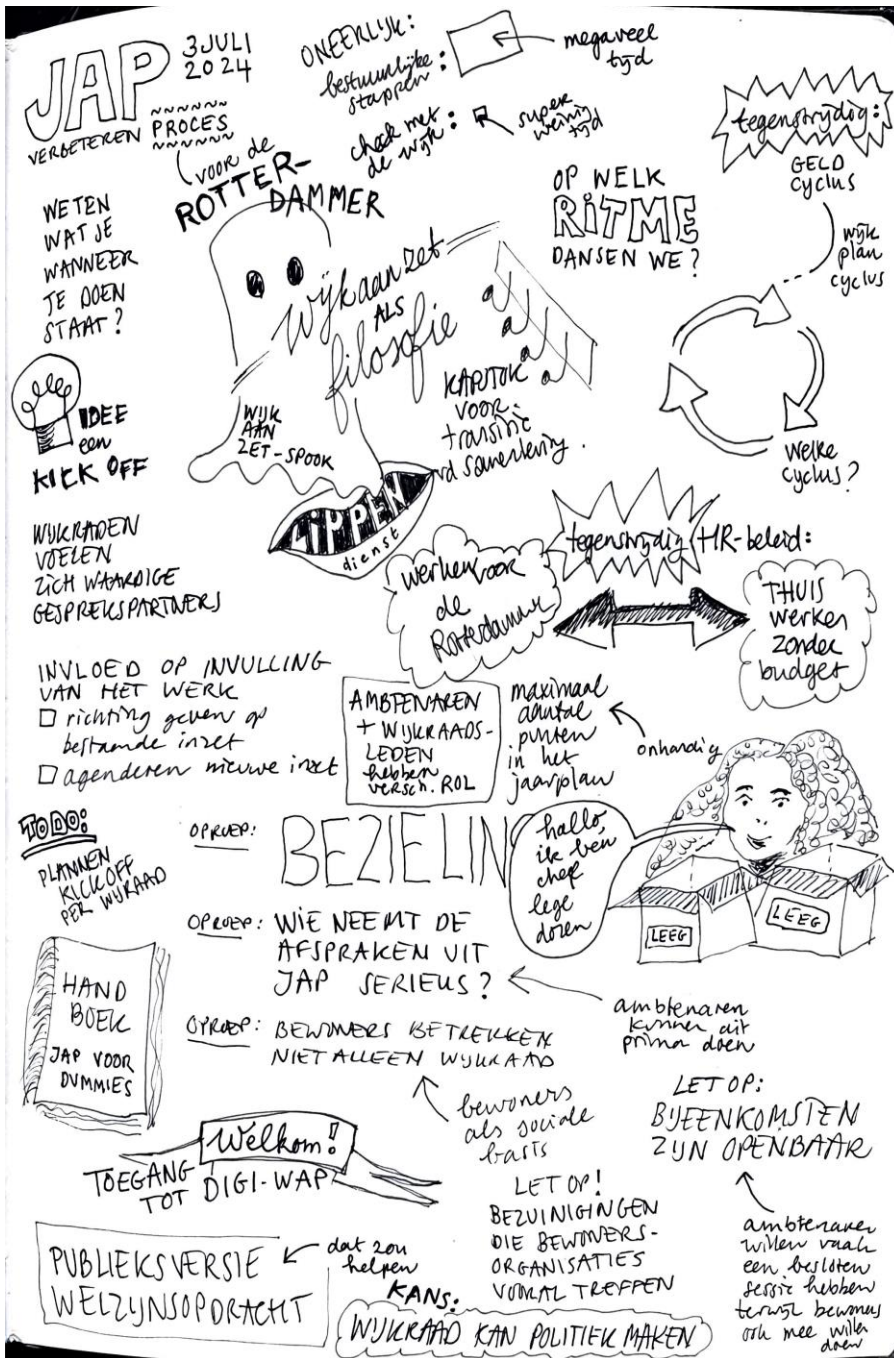 JAP
3 JULI
2024
VERBETEREN
PROCES
voor de
ROTTER-
DAMMER
ONEERLIJK:
bestuurlijke
stappen:
megaveel
tijd
check met
de wijk:
super
weinig
tijd
tegenstrijdig:
GELD
cyclus
wijk
plan
cyclus
welke
cyclus?
OP WELK
RITME
DANSEN WE?
WETEN
WAT JE
WANNEER
TE DOEN
STAAT?
Wijk aan zet
ALS
filosofie
KAPSTOK
VOOR
transitie
d samenleving.
WIJK
AAN
ZET-SPOOK
LIPPEN
dienst
IDEE
een
KICK OFF
WIJKRADEN
VOELEN
ZICH WAARDIGE
GESPREKSPARTNERS
tegenstrijdig HR-beleid:
werken voor
de
Rotterdammer
THUIS
werken
zonder
budget
INVLOED OP INVULLING
VAN HET WERK
richting geven op
bestaande inzet
agenderen nieuwe inzet
AMBTENAREN
+ WIJKRAADS-
LEDEN
hebben
versch. ROL
maximaal
aantal
punten
in het
jaarplan
onhandig
TODO:
PLANNEN
KICKOFF
PER WIJKRAAD
OPROEP: BEZIELIN
hallo,
ik ben
chef
lege
dozen
LEEG
LEEG
OPROEP: WIE NEEMT DE
AFSPRAKEN UIT
JAP SERIEUS?
ambtenaren
kunnen dit
prima doen
HAND
BOEK
JAP VOOR
DUMMIES
OPROEP: BEWONERS BETREKKEN
NIET ALLEEN WIJKRAAD
bewoners
als sociale
basis
LET OP:
BIJEENKOMSTEN
ZIJN OPENBAAR
ambtenaren
willen vaak
een besloten
sessie hebben
terwijl bewoners
ook mee willen
doen
Welkom!
TOEGANG
TOT DIGI-WAP
LET OP!
BEZUINIGINGEN
DIE BEWONERS-
ORGANISATIES
VOORAL TREFFEN
PUBLIEKSVERSIE
WELZIJNSOPDRACHT
dat zou
helpen
KANS:
WIJKRAAD KAN POLITIEK MAKEN